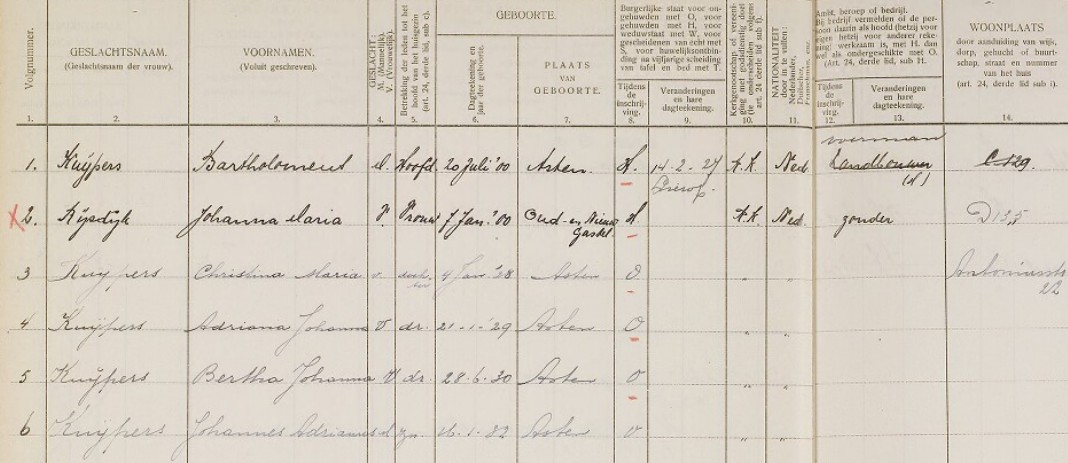 Volgnummer.
1.
GESLACHTSNAAM.
(Geslachtsnaam der vrouw).
2.
VOORNAMEN.
(Voluit geschreven).
3.
GESLACHT:
M. (Mannelijk).
V. (Vrouwelijk).
4.
Betrekking der leden tot het
hoofd van het huisgezin
(art. 24, derde lid, sub c).
5.
GEBOORTE.
Dagteekening en
jaar der geboorte.
6.
PLAATS
VAN
GEBOORTE.
7.
Burgerlijke staat voor on-
gehuwden met O, voor
gehuwden met H, voor
weduwstaat met W, voor
gescheidenen van echt met
S, voor huwelijksontbin-
ding na vijfjarige scheiding
van tafel en bed met T.
Tijdens
de
inschrij-
ving.
8.
Veranderingen
en hare
dagteekening.
9.
Kerkgenootschap of vereeni-
ging met godsdienstig doel
(te omschrijven volgens
art. 24 derde lid, sub f).
10.
NATIONALITEIT
door in te vullen:
Nederlander,
Duitscher,
Franschman, enz.
11.
Ambt, beroep of bedrijf.
Bij bedrijf vermelden óf de per-
soon daarin als hoofd (hetzij voor
eigen hetzij voor anderer reke-
ning) werkzaam is, met H. dan
wel als ondergeschikte met O.
(Art. 24, derde lid, sub H.
Tijdens
de
inschrij-
ving.
12.
Veranderingen
en hare
dagteekening.
13.
WOONPLAATS
door aanduiding van wijk,
dorp, gehucht of buurt-
schap, straat en nummer
van het huis
(art. 24, derde lid sub i).
14.
voerman
1. Kuijpers Bartholomeus M. Hoofd. 20 Juli '00 Asten. H. 14-2-27 R.K. Ned. Landbouwer C 129.
(H)
X 2. Rijsdijk Johanna Maria V. Vrouw 7 Jan. '00 Oud- en Nieuw Gastel. H. R.K. Ned. zonder D 135
3 Kuijpers Christina Maria v. doch-ter 4 Jan. '28 Asten O " " Antoniusstr
22
4 Kuijpers Adriana Johanna V dr. 21-1-'29 Asten O " "
5 Kuijpers Bertha Johanna V dr. 28-6-30 Asten O " "
6 Kuijpers Johannes Adrianus M zn 16-1-32 Asten O " "